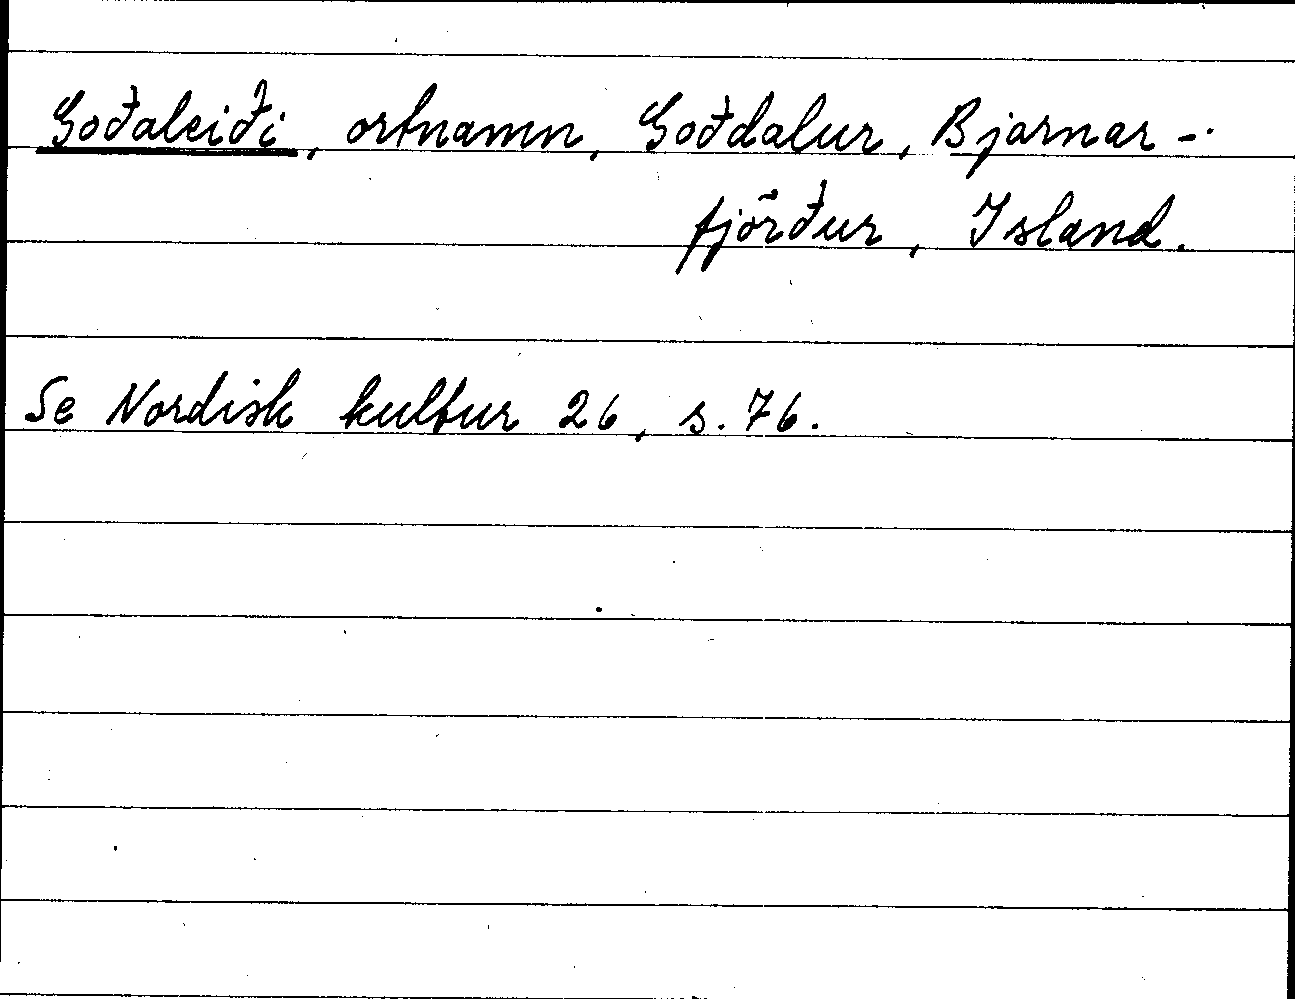 Goðaleiði, ortnamn, Goðdalur, Bjarnar-
fjörður, Island.
Se Nordisk kultur 26, s. 76.